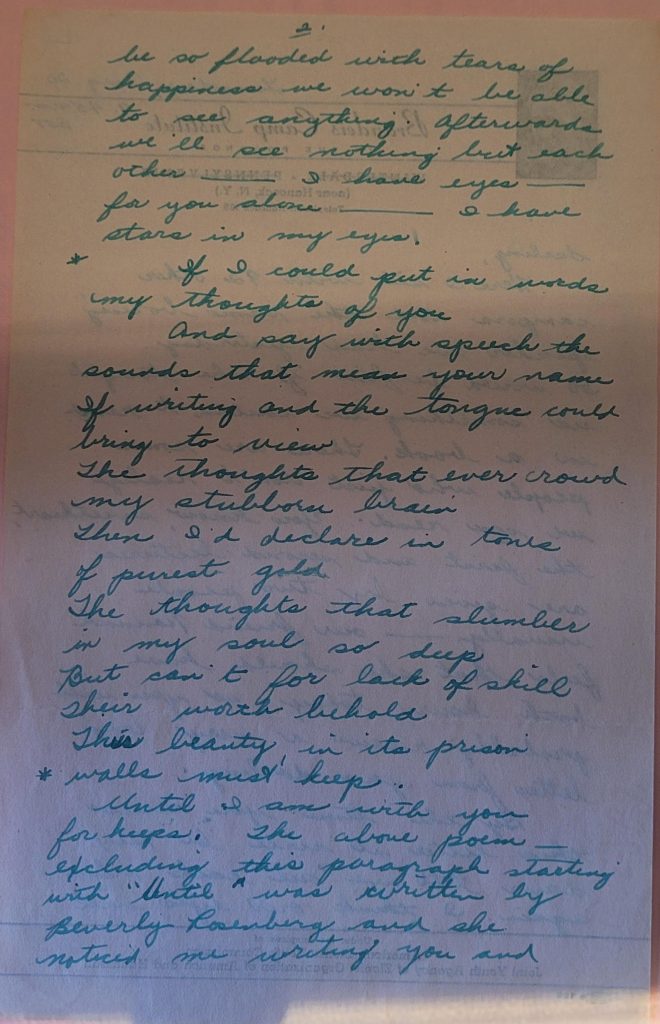 2.
be so flooded with tears of
happiness we won't be able
to see anything Afterwards
we'll see nothing but each
other —— I have eyes ——
for you alone —— I have
stars in my eyes.
* If I could put in words
my thoughts of you
And say with speech the
sounds that mean your name
If writing and the tongue could
bring to view
The thoughts that ever crowd
my stubborn brain
Then I'd declare in tones
of purest gold
The thoughts that slumber
in my soul so deep
But can't for lack of skill
their worth behold
This beauty, in its prison
* walls must keep..
Until I am with you
for keeps. The above poem —
excluding this paragraph starting
with "Until" was written by
Beverly Rosenberg and she
noticed me writing you and